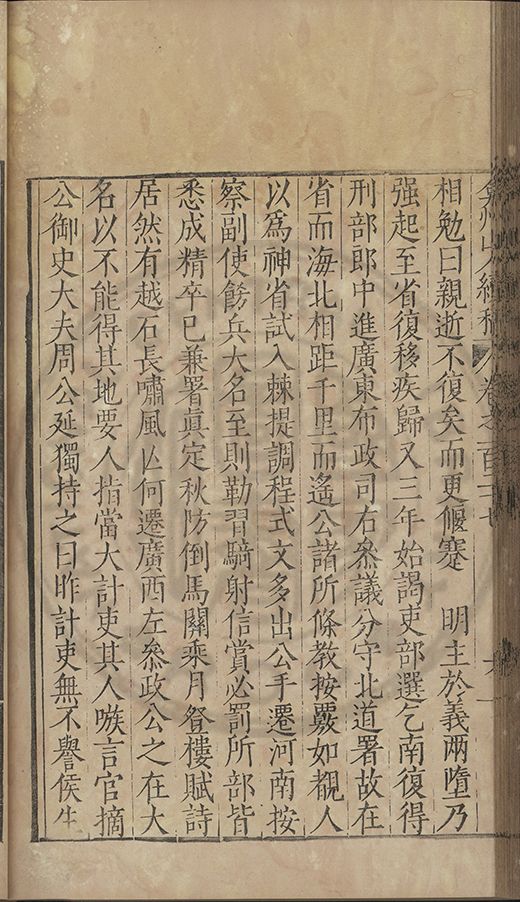 弇州山人續稿 卷之一百二七 六
相勉曰親逝不復矣而更偃蹇 明主於義兩墮乃
强起至省復移疾歸又三年始謁吏部選乞南復得
刑部郎中進廣東布政司右叅議分守北道署故在
省而海北相距千里而遙公諸所條教按覈如覩人
以爲神省試入棘提調程式文多出公手遷河南按
察副使飭兵大名至則勒習騎射信賞必罰所部皆
悉成精卒已兼署眞定秋防倒馬關乘月登樓賦詩
居然有越石長嘯風亾何遷廣西左叅政公之在大
名以不能得其地要人指當大計吏其人嗾言官摘
公御史大夫周公延獨持之曰昨計吏無不譽侯生